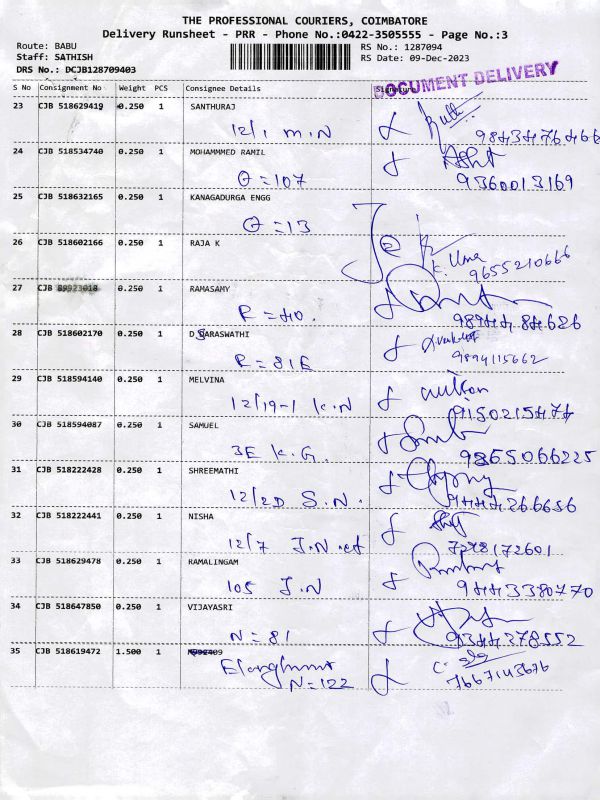 THE PROFESSIONAL COURIERS, COIMBATORE
Delivery Runsheet - PRR - Phone No.:0422-3505555 - Page No.:3
Route: BABU RS No.: 1287094
Staff: SATHISH RS Date: 09-Dec-2023
DRS No.: DCJB128709403
DOCUMENT DELIVERY
S No Consignment No Weight PCS Consignee Details Signature
23 CJB 518629419 0.250 1 SANTHURAJ
12/1 M.N
24 CJB 518534740 0.250 1 MOHAMMMED RAMIL
O = 107 9360013169
25 CJB 518632165 0.250 1 KANAGADURGA ENGG
O = 13
26 CJB 518602166 0.250 1 RAJA K
K. Uma
9655210666
27 CJB 89923018 0.250 1 RAMASAMY
R = 40. 9894484626
28 CJB 518602170 0.250 1 D SARASWATHI
R = 81E 9894115662
29 CJB 518594140 0.250 1 MELVINA
12/19-1 K.N 9150215474
30 CJB 518594087 0.250 1 SAMUEL
3E K.G. 9865066225
31 CJB 518222428 0.250 1 SHREEMATHI
12/2D S.N. 9444266656
32 CJB 518222441 0.250 1 NISHA
12/7 J.N. 7298172601
33 CJB 518629478 0.250 1 RAMALINGAM
105 J.N 9443380770
34 CJB 518647850 0.250 1 VIJAYASRI
N = 81 9344378552
35 CJB 518619472 1.500 1
N = 122 7667143676